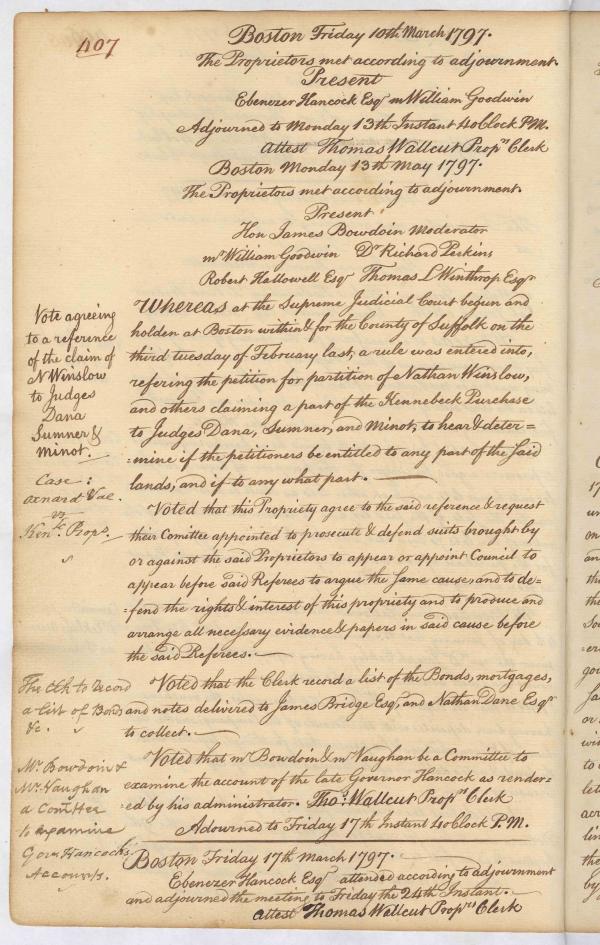 407
Boston Friday 10th March 1797.
The Proprietors met according to adjournment.
Present
Ebenezer Hancock Esqr mr William Goodwin
Adjourned to Monday 13th Instant 4 oClock P.M.
Attest Thomas Wallcut Proprs Clerk
Boston Monday 13th May 1797.
The Proprietors met according to adjournment.
Present
Hon James Bowdoin Moderator
mr William Goodwin Dr Richard Perkins
Robert Hallowell Esqr Thomas L Winthrop Esqr
Vote agreeing
to a reference
of the claim of
N Winslow
to Judges
Dana
Sumner &
Minot.
Whereas at the Supreme Judicial Court begun and
holden at Boston within & for the County of Suffolk on the
third tuesday of February last, a rule was entered into,
refering the petition for partition of Nathan Winslow,
and others claiming a part of the Kennebeck Purchase
to Judges Dana, Sumner, and Minot, to hear & deter=
=mine if the petitioners be entitled to any part of the said
lands, and if to any what part.
Case:
oxnard & al.
vs
Kenk. Props.
Voted that this Propriety agree to the said reference & request
their Comittee appointed to prosecute & defend suits brought by
or against the said Proprietors to appear or appoint Council to
appear before said Referees to argue the same cause, and to de=
=fend the rights & interest of this propriety and to produce and
arrange all necessary evidence & papers in said cause before
the said Referees.
The Clk to record
a list of Bonds
&c.
Voted that the Clerk record a list of the Bonds, mortgages,
and notes delivered to James Bridge Esq, and Nathan Dane Esqr
to collect.
Mr. Bowdoin &
Mr. Vaughan
a Comttee
to examine
Govr Hancock's
Accounts.
Voted that mr Bowdoin & mr Vaughan be a Committee to
examine the account of the late Governor Hancock as render=
=ed by his administrator. Thos. Wallcut Proprs Clerk
Adourned to Friday 17th Instant 4 oClock P.M.
Boston Friday 17th March 1797.
Ebenezer Hancock Esqr attended according to adjournment
and adjourned the meeting to Friday the 24th Instant.
Attest Thomas Wallcut Proprs Clerk